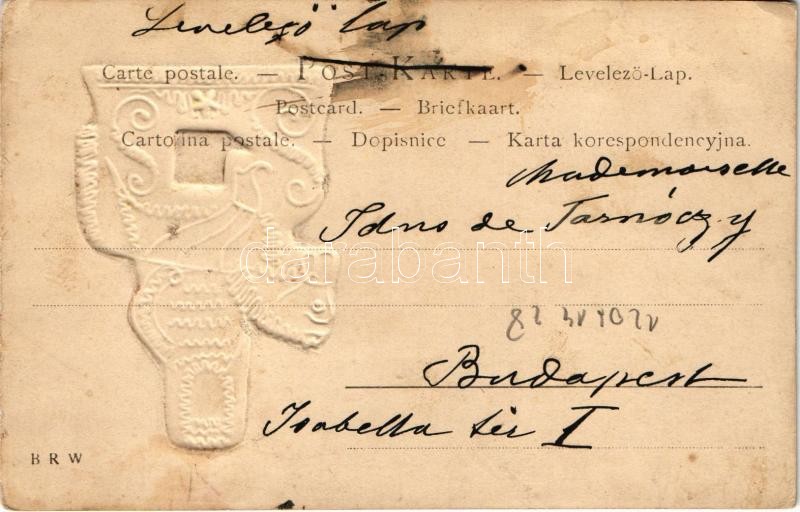 Levelező lap
Carte postale. — POST-KARTE. — Levelező-Lap.
Postcard. — Briefkaart.
Cartolina postale. — Dopisnice — Karta korespondencyjna.
Mademoiselle
de Tarnóczy
darabanth
Budapest
Isabella tér I
B R W